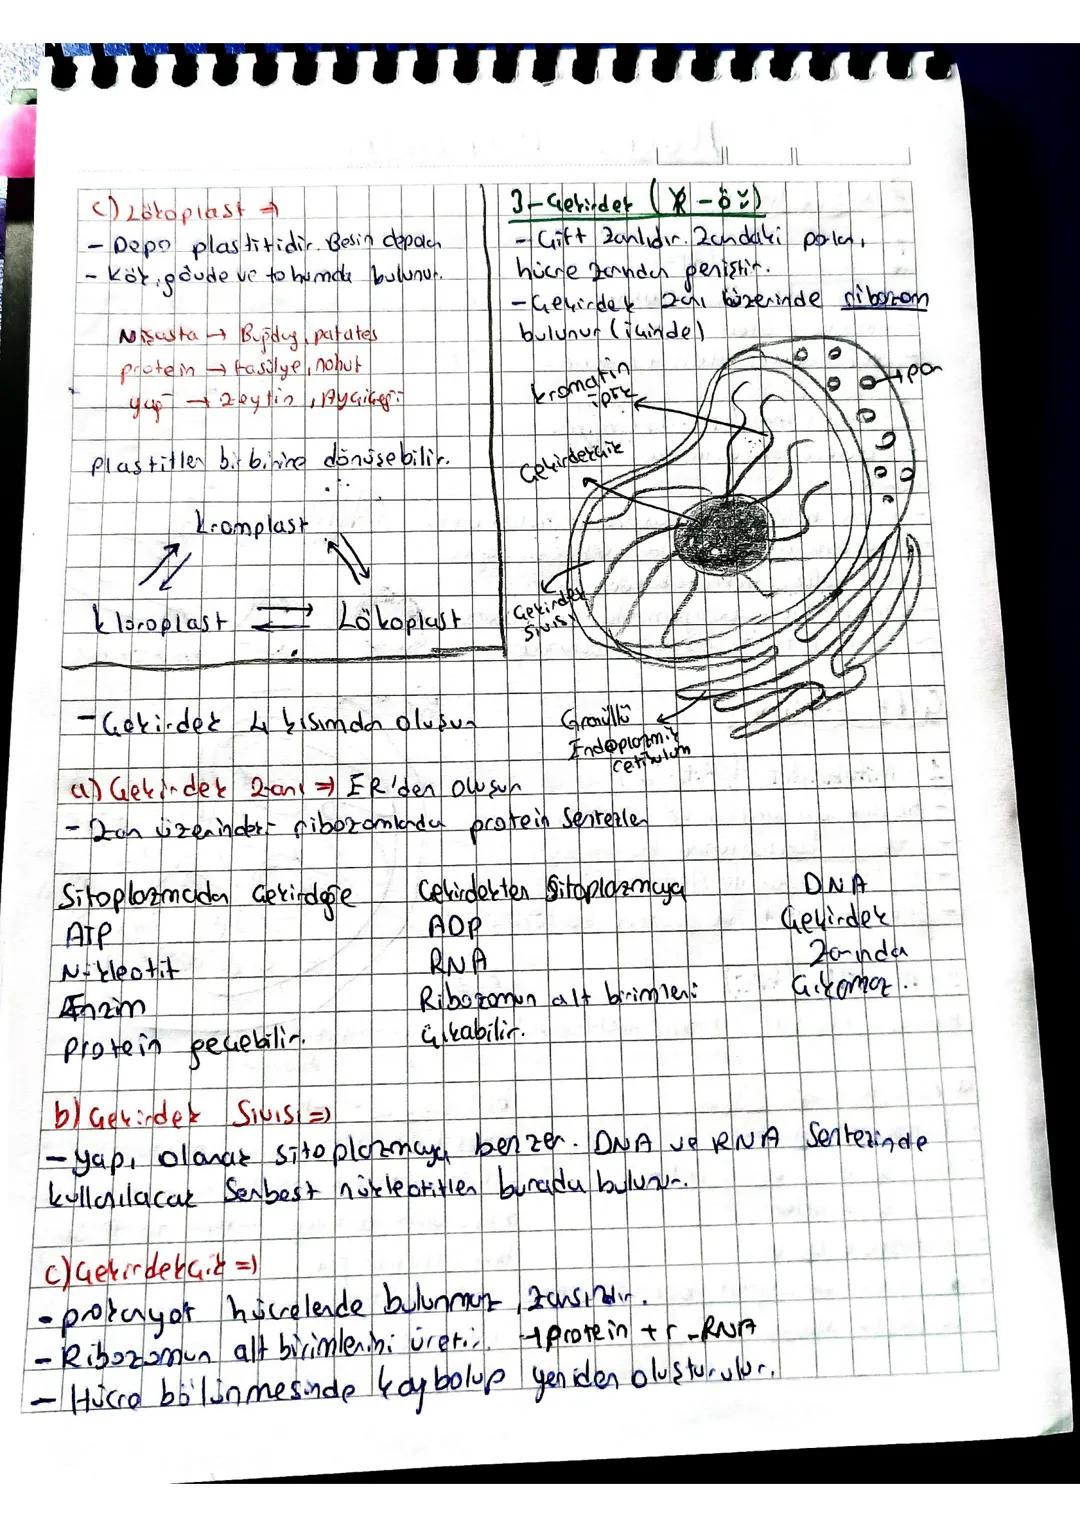 c) Lökoplast ⇒
- Depo plastitidir. Besin depolar
- Kök, gövde ve tohumda bulunur.
Nişasta → Buğday, patates
protein → fasülye, nohut
yağ → zeytin, Ayçiçeği
plastitler birbirine dönüşebilir.
kromplast
kloroplast ⇌ Lökoplast
3-Çekirdek (
- Çift zarlıdır. Zarındaki porlar,
hücre zarından geniştir.
- Çekirdek zarı üzerinde ribozom
bulunur (içinde)
kromatin
iplik
por
Çekirdekçik
Çekirdek
Sıvısı
Granüllü
Endoplazmik
retikulum
- Çekirdek 4 kısımdan oluşur
a) Çekirdek zarı ⇒ ER'den oluşur
- Zar üzerindeki ribozomlarda protein sentezler
Sitoplazmadan çekirdeğe
ATP
Nükleotit
Enzim
protein geçebilir.
Çekirdekten Sitoplazmaya
ADP
RNA
Ribozomun alt birimleri
çıkabilir.
DNA
Çekirdek
zarından
çıkamaz..
b) Çekirdek Sıvısı ⇒
- yapı olarak sitoplazmaya benzer. DNA ve RNA Sentezinde
kullanılacak Serbest nükleotitler burada bulunur.
c) Çekirdekçik ⇒
- prokaryot hücrelerde bulunmaz, zarsızdır.
- Ribozomun alt birimlerini üretir. → protein + r-RNA
- Hücre bölünmesinde kaybolup yeniden oluşturulur.